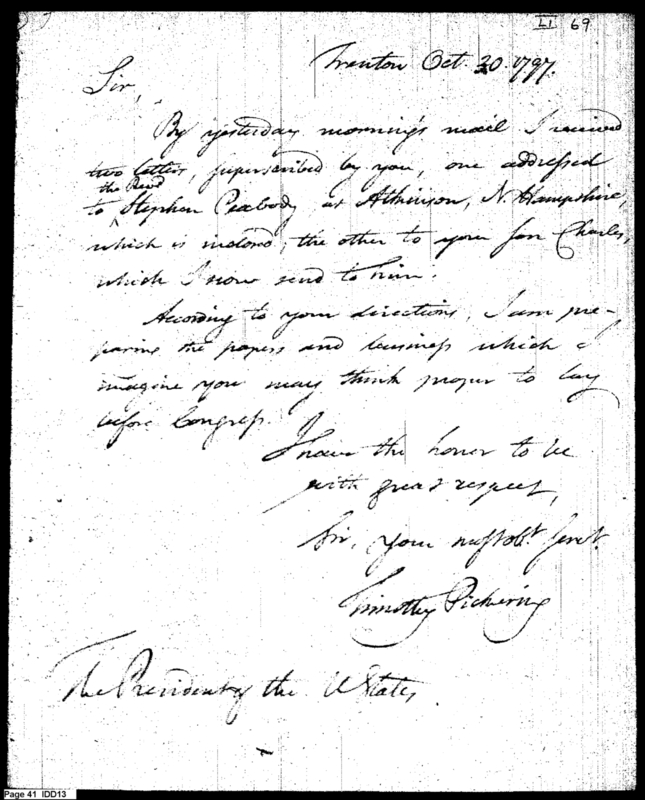 LI 69
Trenton Oct. 20. 1797.
Sir,
By yesterday morning's mail I received
two letters, superscribed by you, one addressed
the Revd
to Stephen Peabody at Atkinson, N. Hampshire,
which is inclosed; the other to your son Charles,
which I now send to him.
According to your directions, I am pre-
paring the papers and business which I
imagine you may think proper to lay
before Congress.
I have the honor to be
with great respect,
Sir, your most obt. servt.
Timothy Pickering
The President of the U States.
Page 41 IDD13